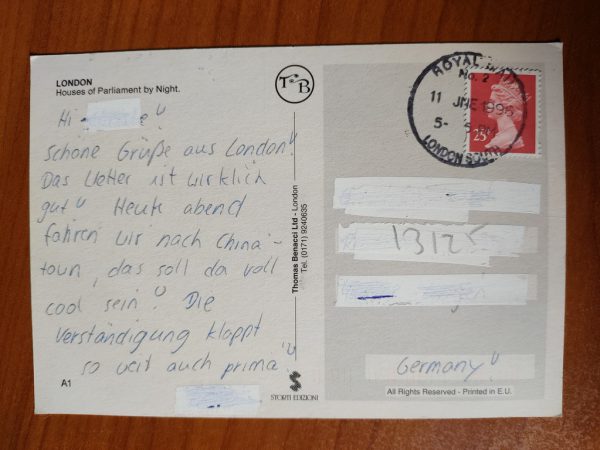 LONDON
Houses of Parliament by Night.
Hi
schöne Grüße aus London!
Das Wetter ist wirklich
gut! Heute abend
fahren wir nach China-
town, das soll da voll
cool sein! Die
Verständigung klappt
so weit auch prima!
A1
TB
Thomas Benacci Ltd - London
Tel. (0171) 9240635
STORTI EDIZIONI
ROYAL MAIL
No. 2
11 JNE 1996
5-
LONDON SOUTH
25
13125
Germany!
All Rights Reserved - Printed in E.U.